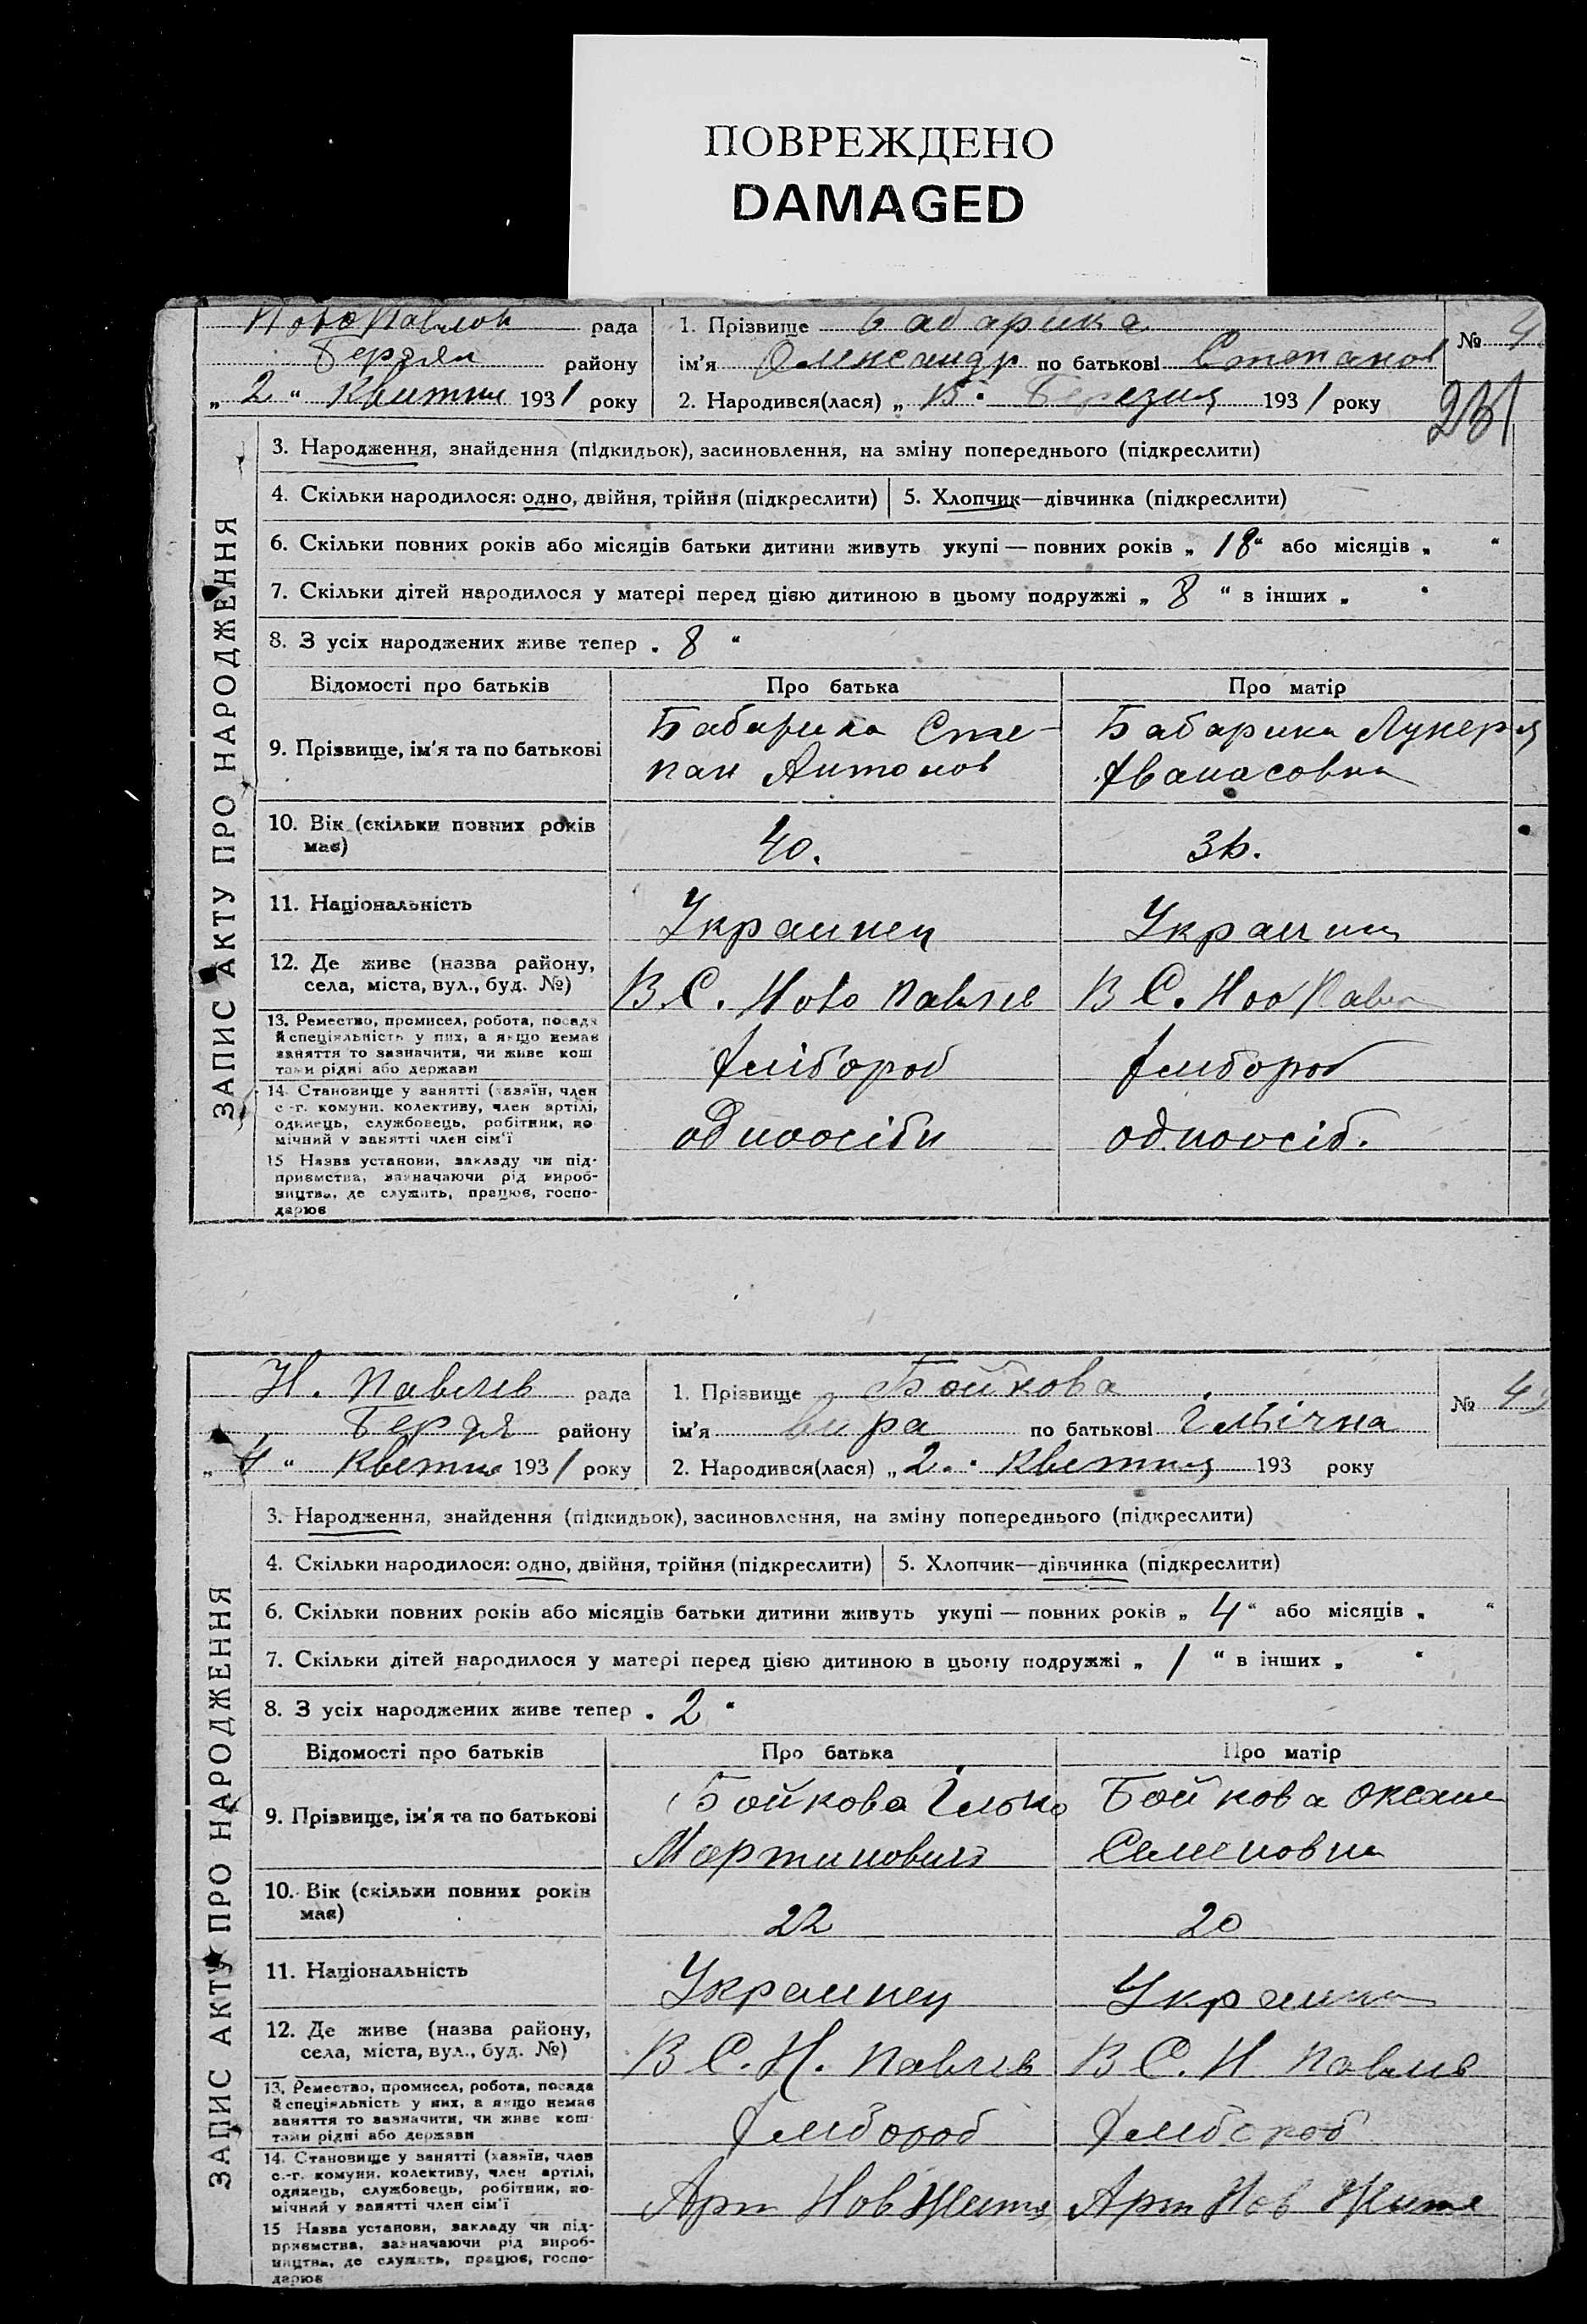 ПОВРЕЖДЕНО
DAMAGED
рада
Бердян района
„ 2 “ Квитня 1931 року
1. Прізвище Бабарика
ім'я Олександр по батькові Степанов
2. Народився(лася) „ 15 “ Березня 1931 року
№ 4
231
ЗАПИС АКТУ ПРО НАРОДЖЕННЯ
3. Народження, знайдення (підкидьок), засиновлення, на зміну попереднього (підкреслити)
4. Скільки народилося: одно, двійня, трійня (підкреслити) 5. Хлопчик—дівчинка (підкреслити)
6. Скільки повних років або місяців батьки дитини живуть укупі — повних років „ 18 “ або місяців „ “
7. Скільки дітей народилося у матері перед цією дитиною в цьому подружжі „ 8 “ в інших „ “
8. З усіх народжених живе тепер „ 8 “
Відомості про батьків Про батька Про матір
9. Прізвище, ім'я та по батькові
Бабарика Сте-
пан Антонов
Бабарика Лукерія
Аванасовна
10. Вік (скільки повних років
має)
40.
11. Національність
Украинец
12. Де живе (назва району,
села, міста, вул., буд. №)
В С. Ново Павлів
В С. Нов Павл
13. Ремество, промисел, робота, посада
й спеціяльність у них, а якщо немає
заняття то зазначити, чи живе кош
тами рідні або держави
Хлібороб
Хлибороб
14. Становище у занятті (хазяїн, член
с.-г. комуни, колективу, член артілі,
одинець, службовець, робітник, по
мічний у занятті член сім'ї
одноосібн
одноосіб.
15 Назва установи, закладу чи під-
приємства, зазначаючи рід вироб-
ництва, де служить, працює, госпо-
дарює
Н. Павлів рада
Бердя району
„ 4 “ Квітня 1931 року
1. Прізвище Бойкова
ім'я Вира по батькові Ільічна
2. Народився(лася) „ 2 “ Квітния 193 року
№ 4
ЗАПИС АКТУ ПРО НАРОДЖЕННЯ
3. Народження, знайдення (підкидьок), засиновлення, на зміну попереднього (підкреслити)
4. Скільки народилося: одно, двійня, трійня (підкреслити) 5. Хлопчик—дівчинка (підкреслити)
6. Скільки повних років або місяців батьки дитини живуть укупі — повних років „ 4 “ або місяців „ “
7. Скільки дітей народилося у матері перед цією дитиною в цьому подружжі „ 1 “ в інших „ “
8. З усіх народжених живе тепер „ 2 “
Відомості про батьків Про батька Про матір
9. Прізвище, ім'я та по батькові
Бойкова Ілько
Мартинович
Бойкова Оксана
Семеновна
10. Вік (скільки повних років
має)
22
20
11. Національність
Украинец
Украинка
12. Де живе (назва району,
села, міста, вул., буд. №)
В С. Н. Павлів
В С. Н Павлів
13. Ремество, промисел, робота, посада
й спеціяльність у них, а якщо немає
заняття то зазначити, чи живе кош
тами рідні або держави
Хлибороб
Хлибороб
14. Становище у занятті (хазяїн, член
с.-г. комуни, колективу, член артілі,
одинець, службовець, робітник, по-
мічний у занятті член сім'ї
Арт Нов Життя
Арт Нов Життя
15 Назва установи, закладу чи під-
приємства, зазначаючи рід вироб-
ництва, де служить, працює, госпо-
дарює